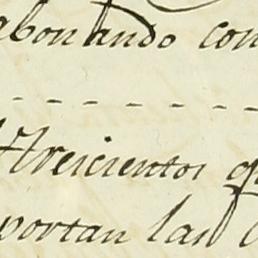 abonando con
treicientos q
portan las